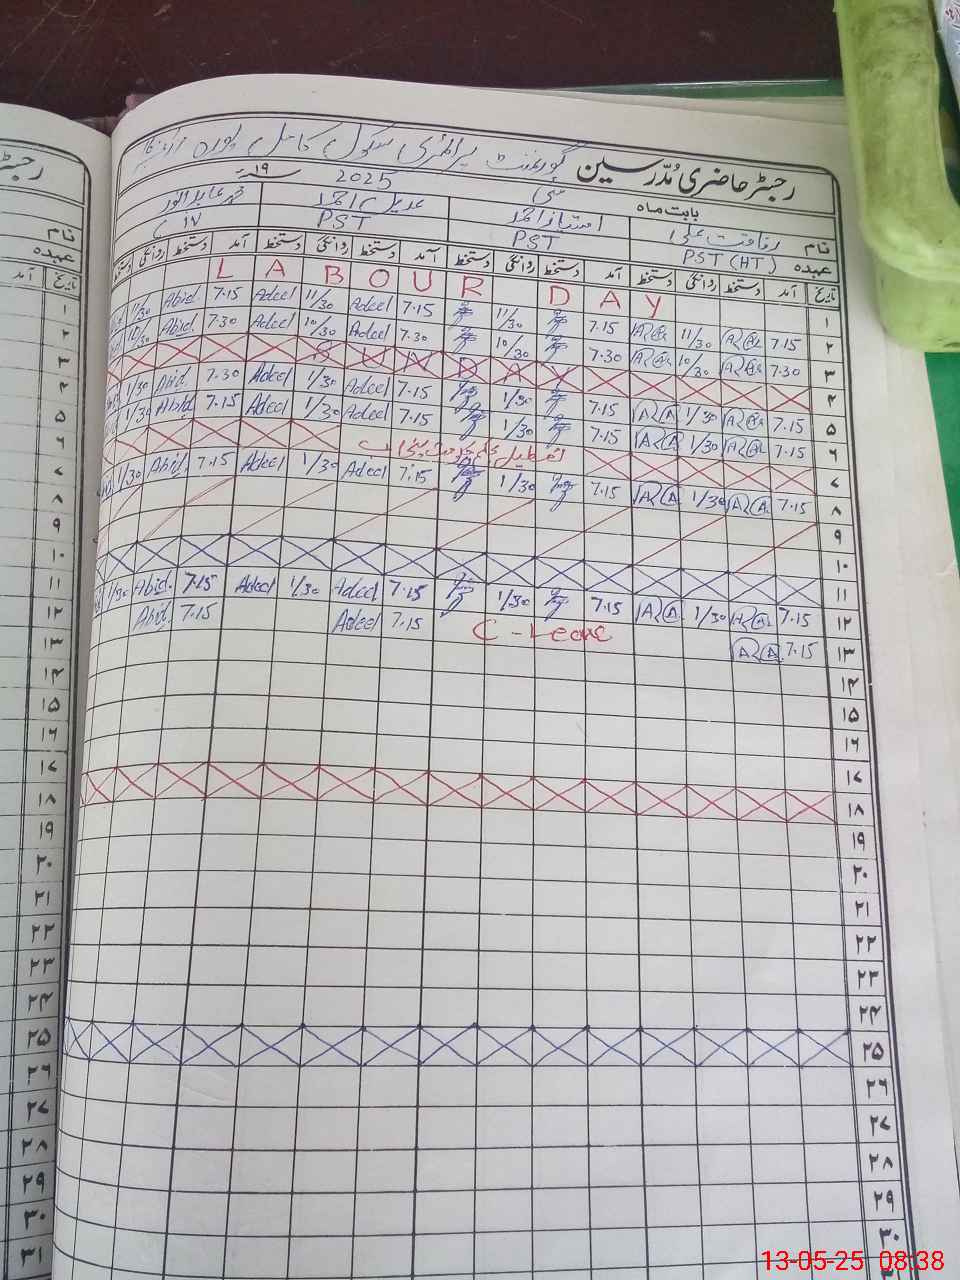 رجسٹر حاضری مُدرسین گورنمنٹ پرائمری سکول کامل پورہ
بابت ماہ مئی 2025 ۱۹ سنہ
نام رفاقت علی امتیاز احمد عدیل احمد محمد عابد انور
عہدہ PST (HT) PST PST
تاریخ آمد دستخط روانگی دستخط آمد دستخط روانگی دستخط آمد دستخط روانگی دستخط آمد دستخط روانگی دستخط
۱ LABOUR DAY
۲ 7.15 11/30 7.15 11/30 7.15 Adeel 11/30 Adeel 7.15 Abid 11/30
۳ 7.30 10/30 7.30 10/30 7.30 Adeel 10/30 Adeel 7.30 Abid 10/30
۴ SUNDAY
۵ 7.15 1/30 7.15 1/30 7.15 Adeel 1/30 Adeel 7.30 Abid 1/30
۶ 7.15 1/30 7.15 1/30 7.15 Adeel 1/30 Adeel 7.15 Abid 1/30
۷ تعطیل
۸ 7.15 1/30 7.15 1/30 7.15 Adeel 1/30 Adeel 7.15 Abid 1/30
۹
۱۰
۱۱
۱۲ 7.15 1/30 7.15 1/30 7.15 Adeel 1/30 Adeel 7.15 Abid. 1/30
۱۳ 7.15 C-Leave 7.15 Adeel 7.15 Abid
۱۴
۱۵
۱۶
۱۷
۱۸
۱۹
۲۰
۲۱
۲۲
۲۳
۲۴
۲۵
۲۶
۲۷
۲۸
۲۹
۳۰
رجسٹر
نام
عہدہ
تاریخ آمد
۱
۲
۳
۴
۵
۶
۷
۸
۹
۱۰
۱۱
۱۲
۱۳
۱۴
۱۵
۱۶
۱۷
۱۸
۱۹
۲۰
۲۱
۲۲
۲۳
۲۴
۲۵
۲۶
۲۷
۲۸
۲۹
۳۰
۳۱
13-05-25 08:38